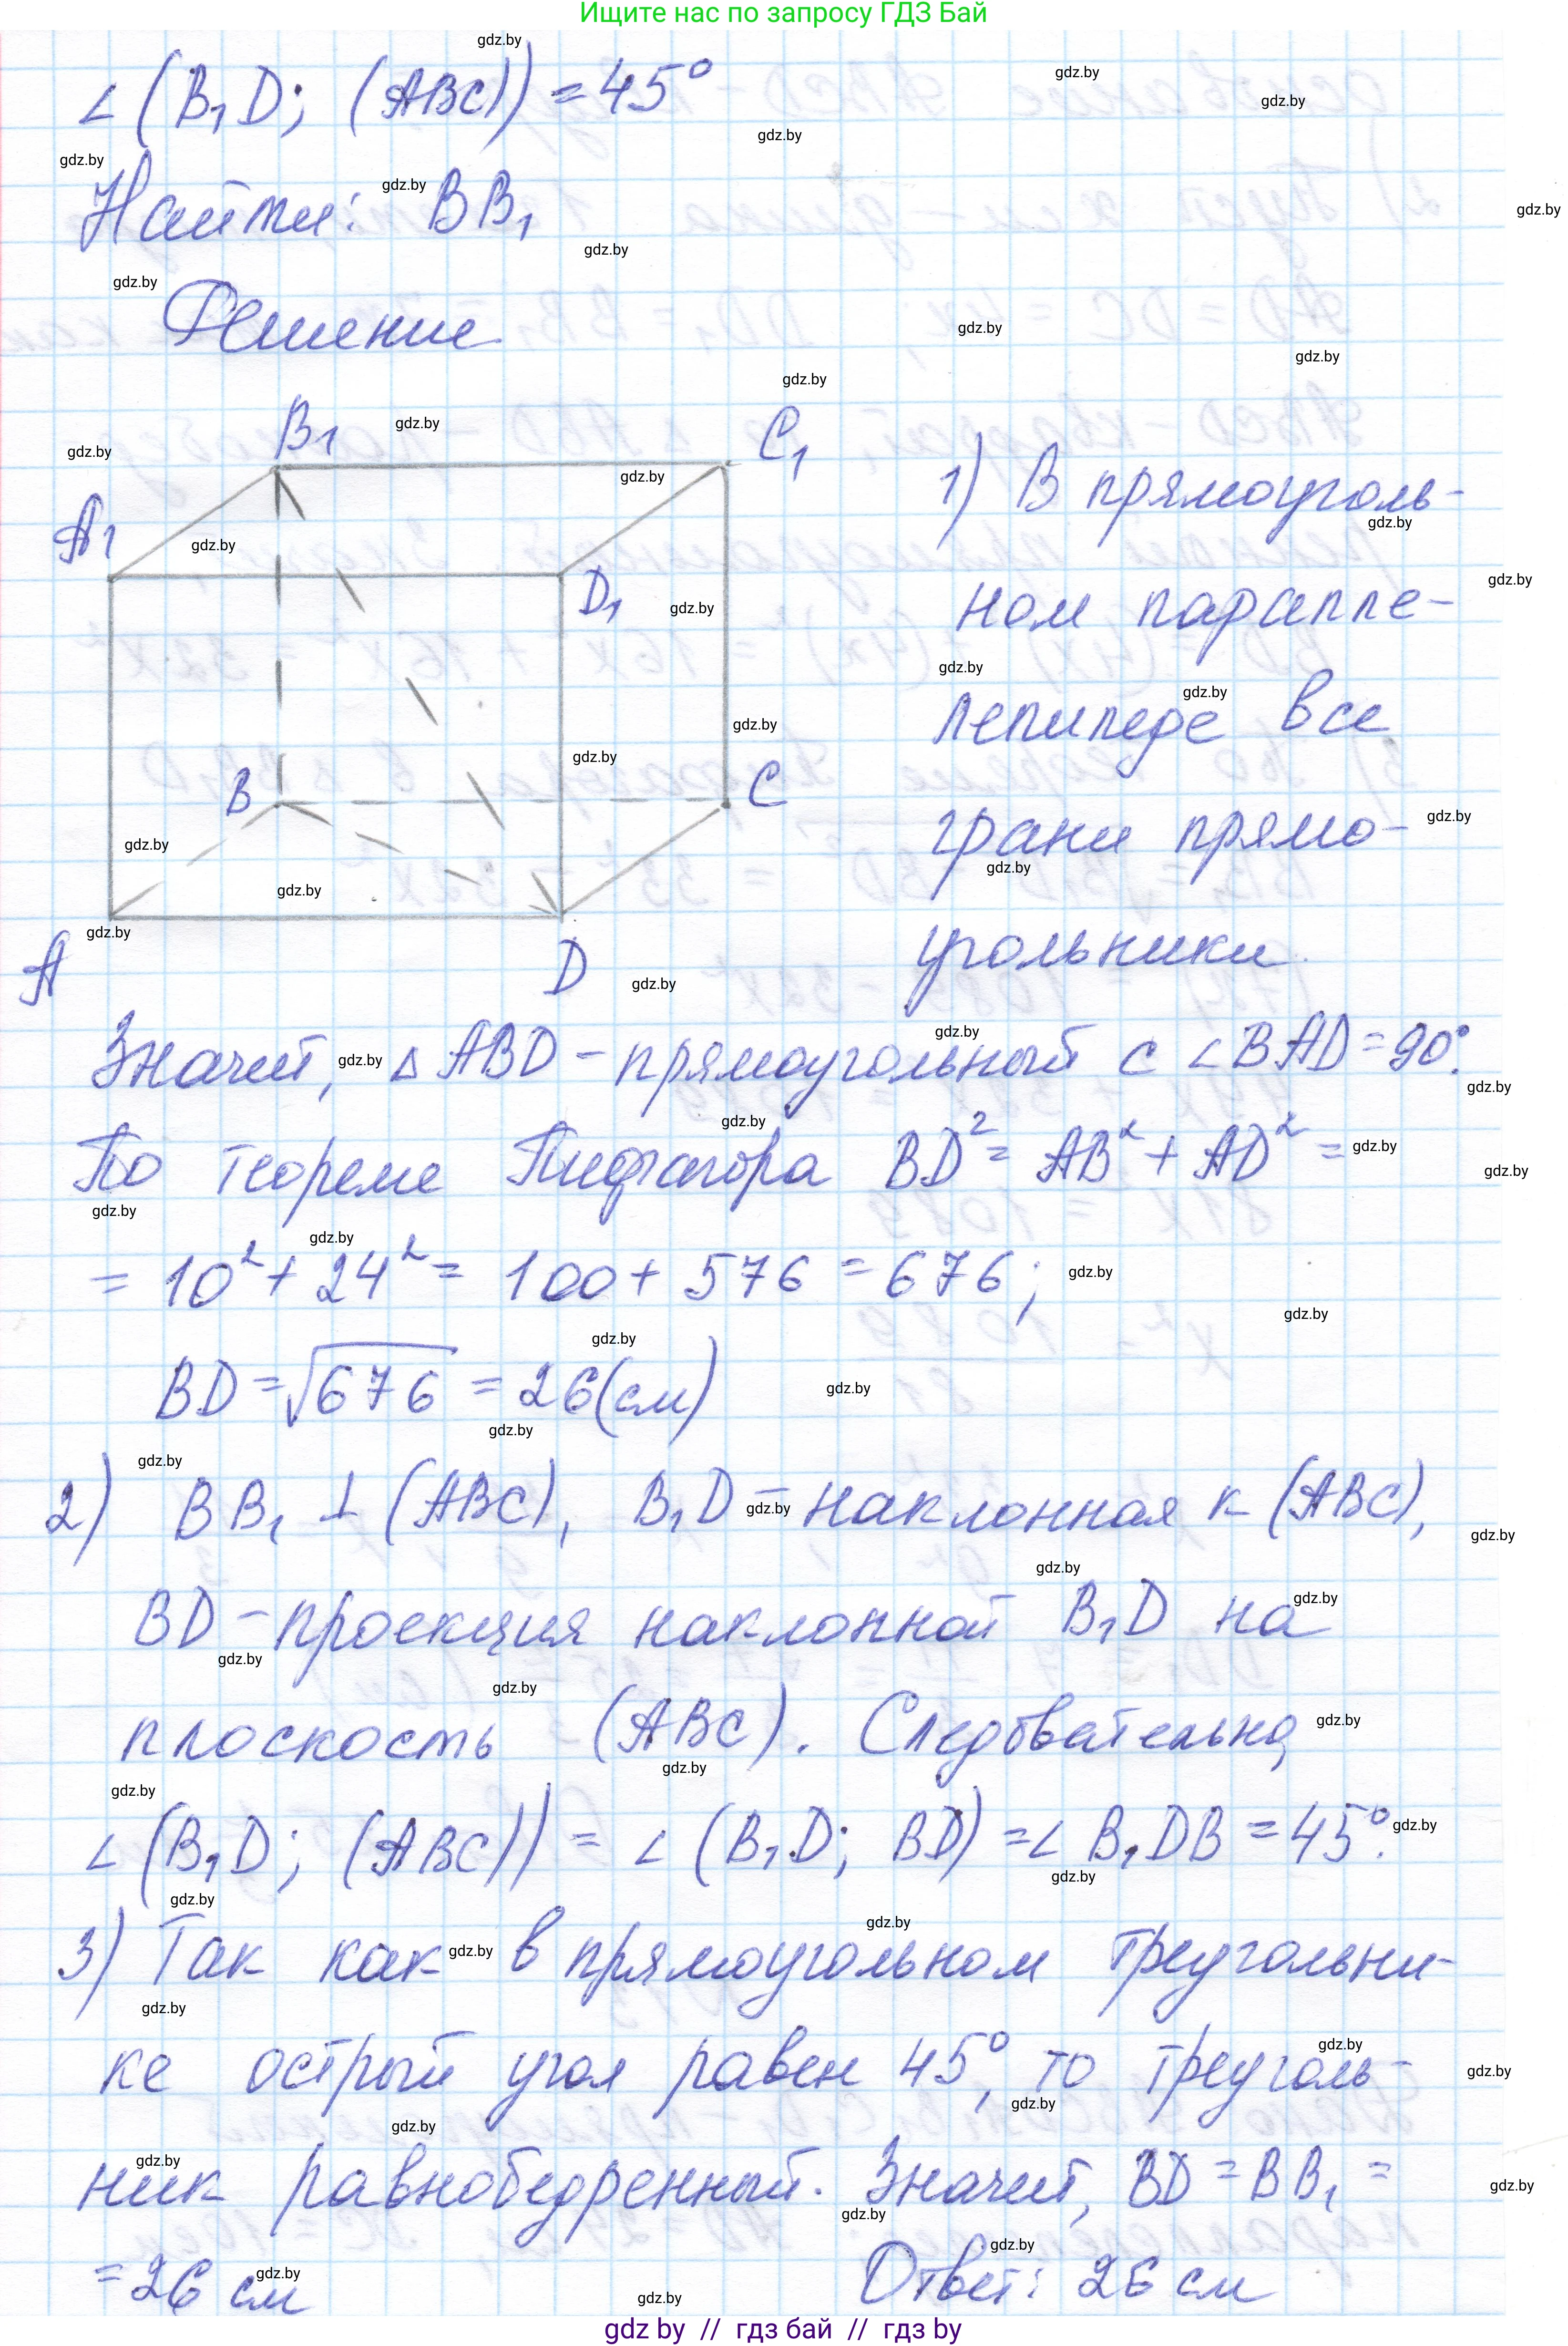 Ищите нас по запросу ГДЗ Бай
∠(B₁D; (ABC)) = 45°
Найти: BB₁
Решение
B₁
C₁
A₁
D₁
B
C
A
D
1) В прямоуголь-
ном паралле-
лепипеде все
грани прямо-
угольники.
Значит, △ABD – прямоугольный с ∠BAD = 90°.
По теореме Пифагора BD² = AB² + AD² =
= 10² + 24² = 100 + 576 = 676;
BD = √676 = 26 (см)
2) BB₁ ⊥ (ABC), B₁D – наклонная к (ABC),
BD – проекция наклонной B₁D на
плоскость (ABC). Следовательно,
∠(B₁D; (ABC)) = ∠(B₁D; BD) = ∠B₁DB = 45°.
3) Так как в прямоугольном треугольни-
ке острый угол равен 45°, то треуголь-
ник равнобедренный. Значит, BD = BB₁ =
= 26 см
Ответ: 26 см
gdz by // гдз бай // gdz by